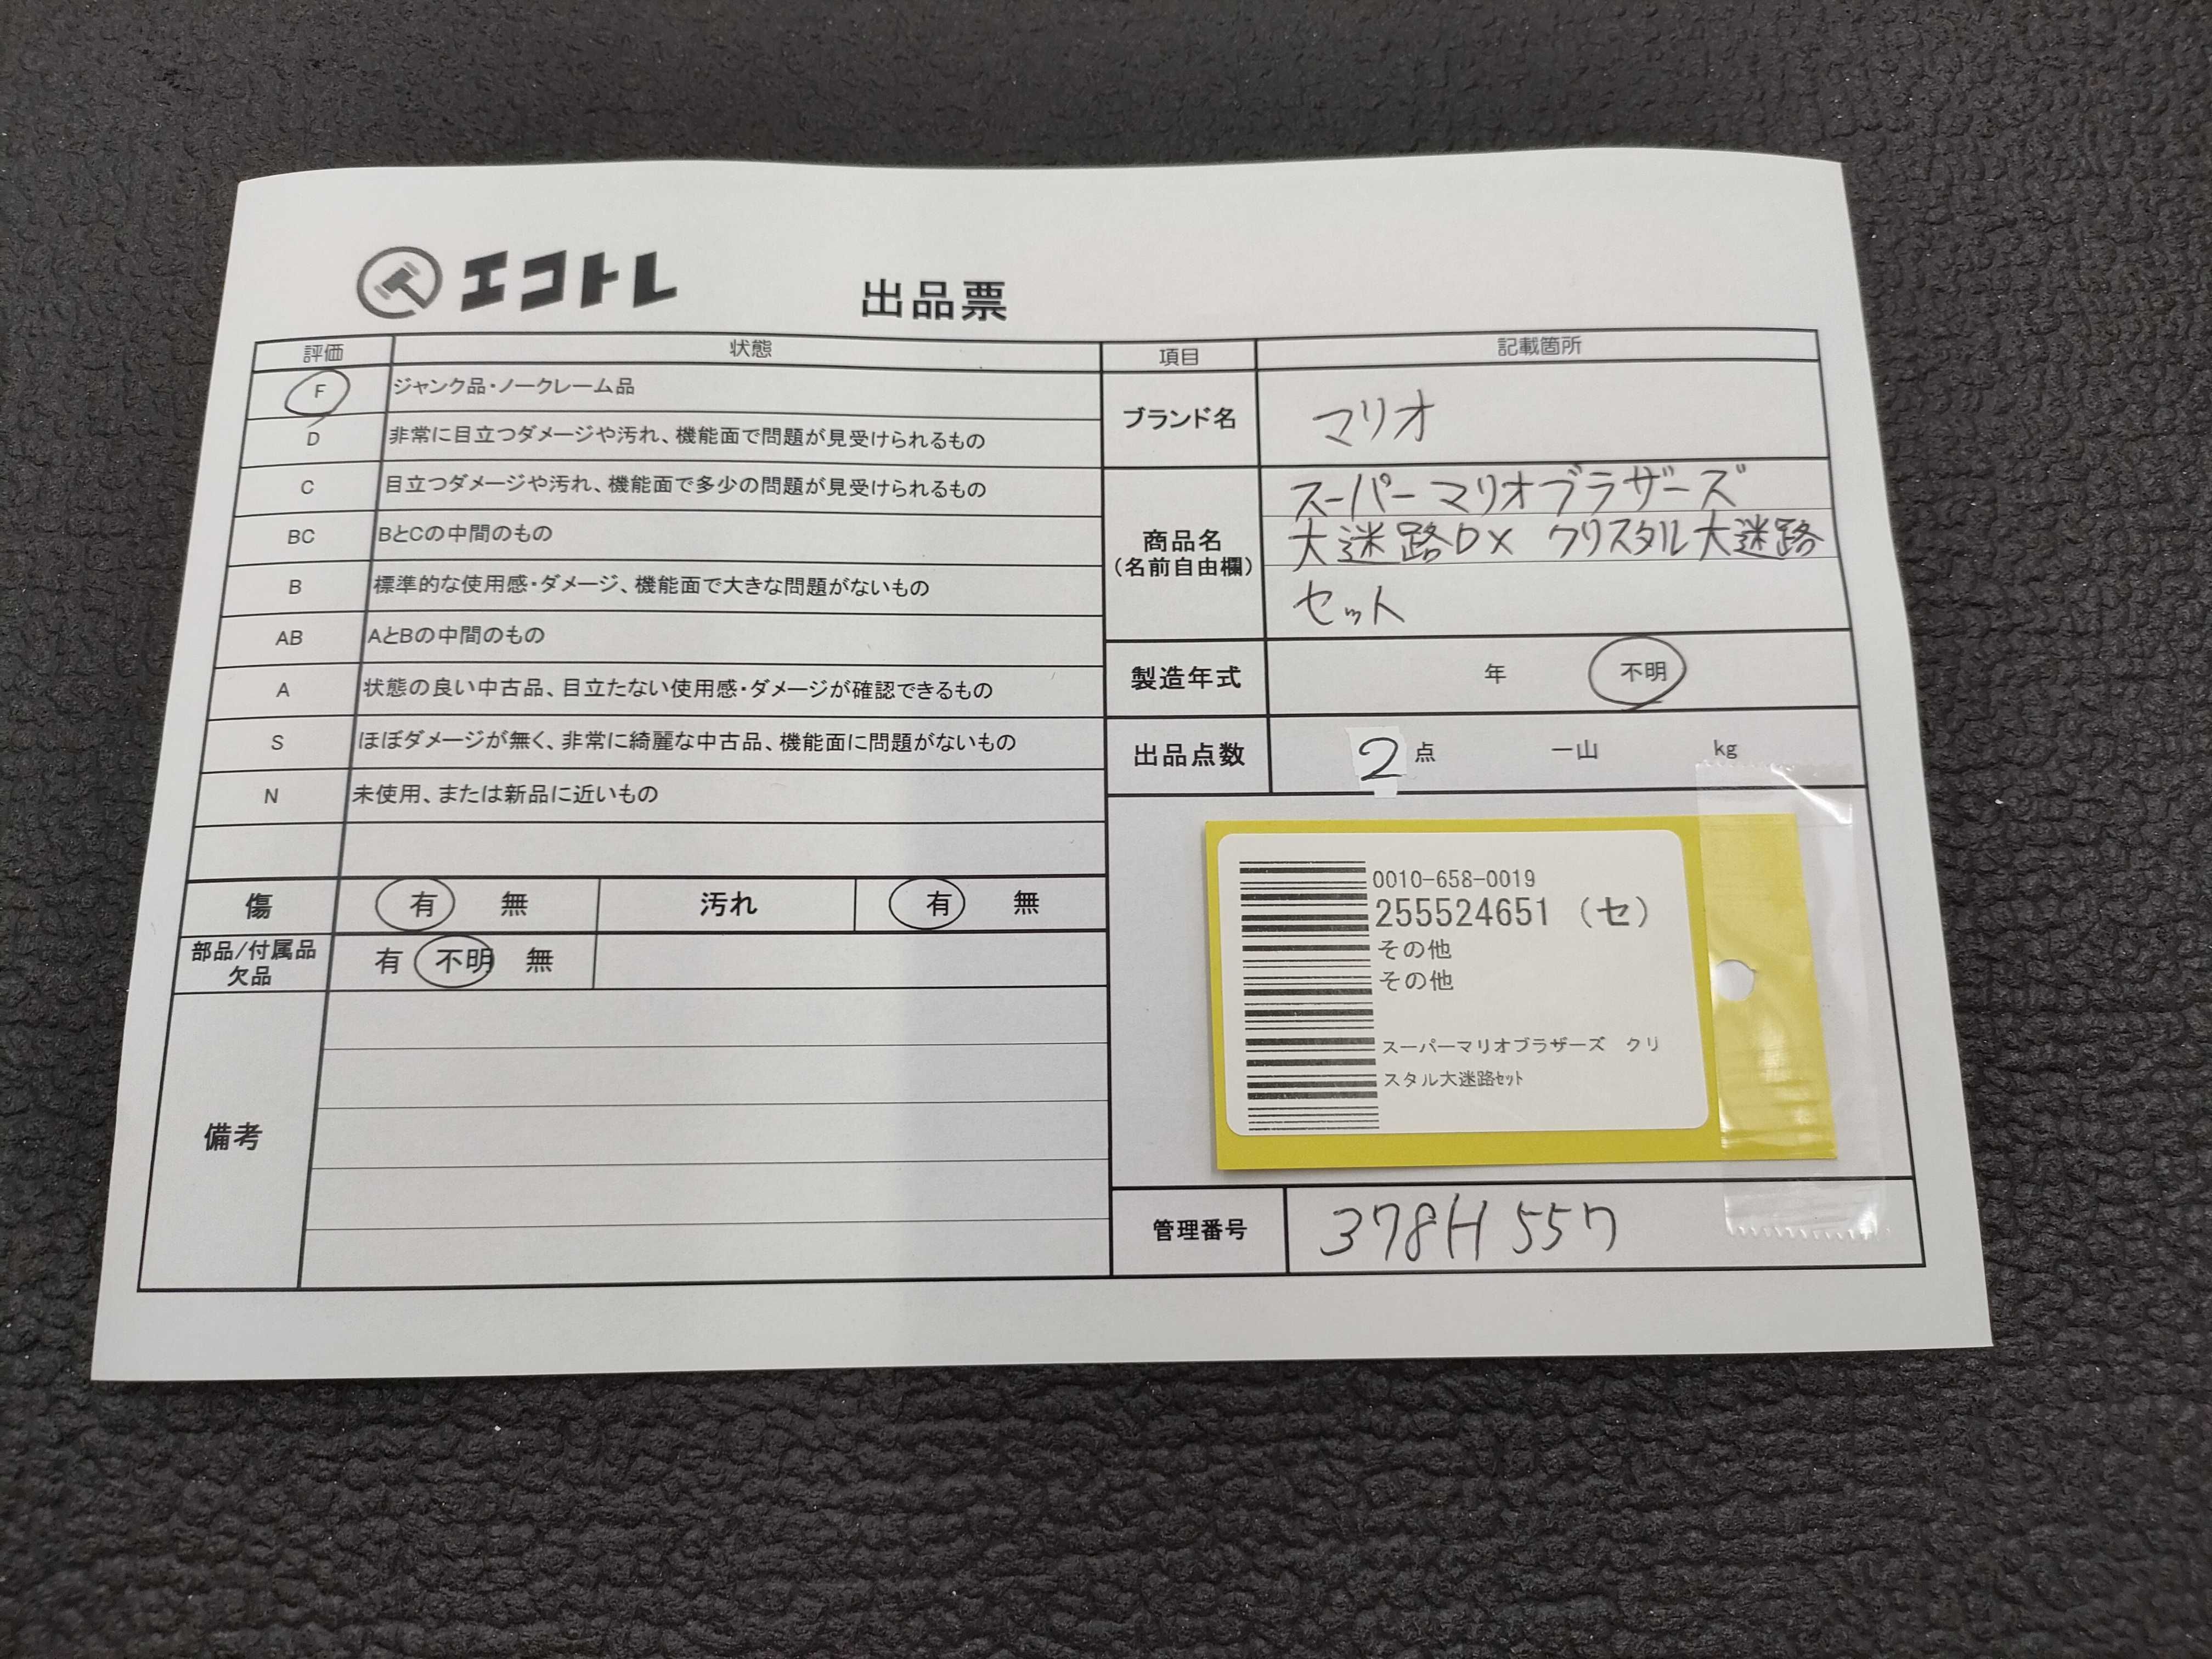 エコトレ
出品票
評価 状態
F ジャンク品・ノークレーム品
D 非常に目立つダメージや汚れ、機能面で問題が見受けられるもの
C 目立つダメージや汚れ、機能面で多少の問題が見受けられるもの
BC BとCの中間のもの
B 標準的な使用感・ダメージ、機能面で大きな問題がないもの
AB AとBの中間のもの
A 状態の良い中古品、目立たない使用感・ダメージが確認できるもの
S ほぼダメージが無く、非常に綺麗な中古品、機能面に問題がないもの
N 未使用、または新品に近いもの
傷 有 無 汚れ 有 無
部品/付属品
欠品
有 不明 無
備考
項目 記載箇所
ブランド名 マリオ
商品名
(名前自由欄)
スーパーマリオブラザーズ
大迷路DX クリスタル大迷路
セット
製造年式 年 不明
出品点数 2 点 一山 kg
0010-658-0019
255524651 (セ)
その他
その他
スーパーマリオブラザーズ クリ
スタル大迷路ｾｯﾄ
管理番号 378H557